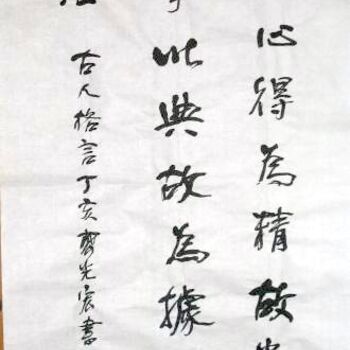 心得為精故
此典故為據
古人格言丁亥光宏書